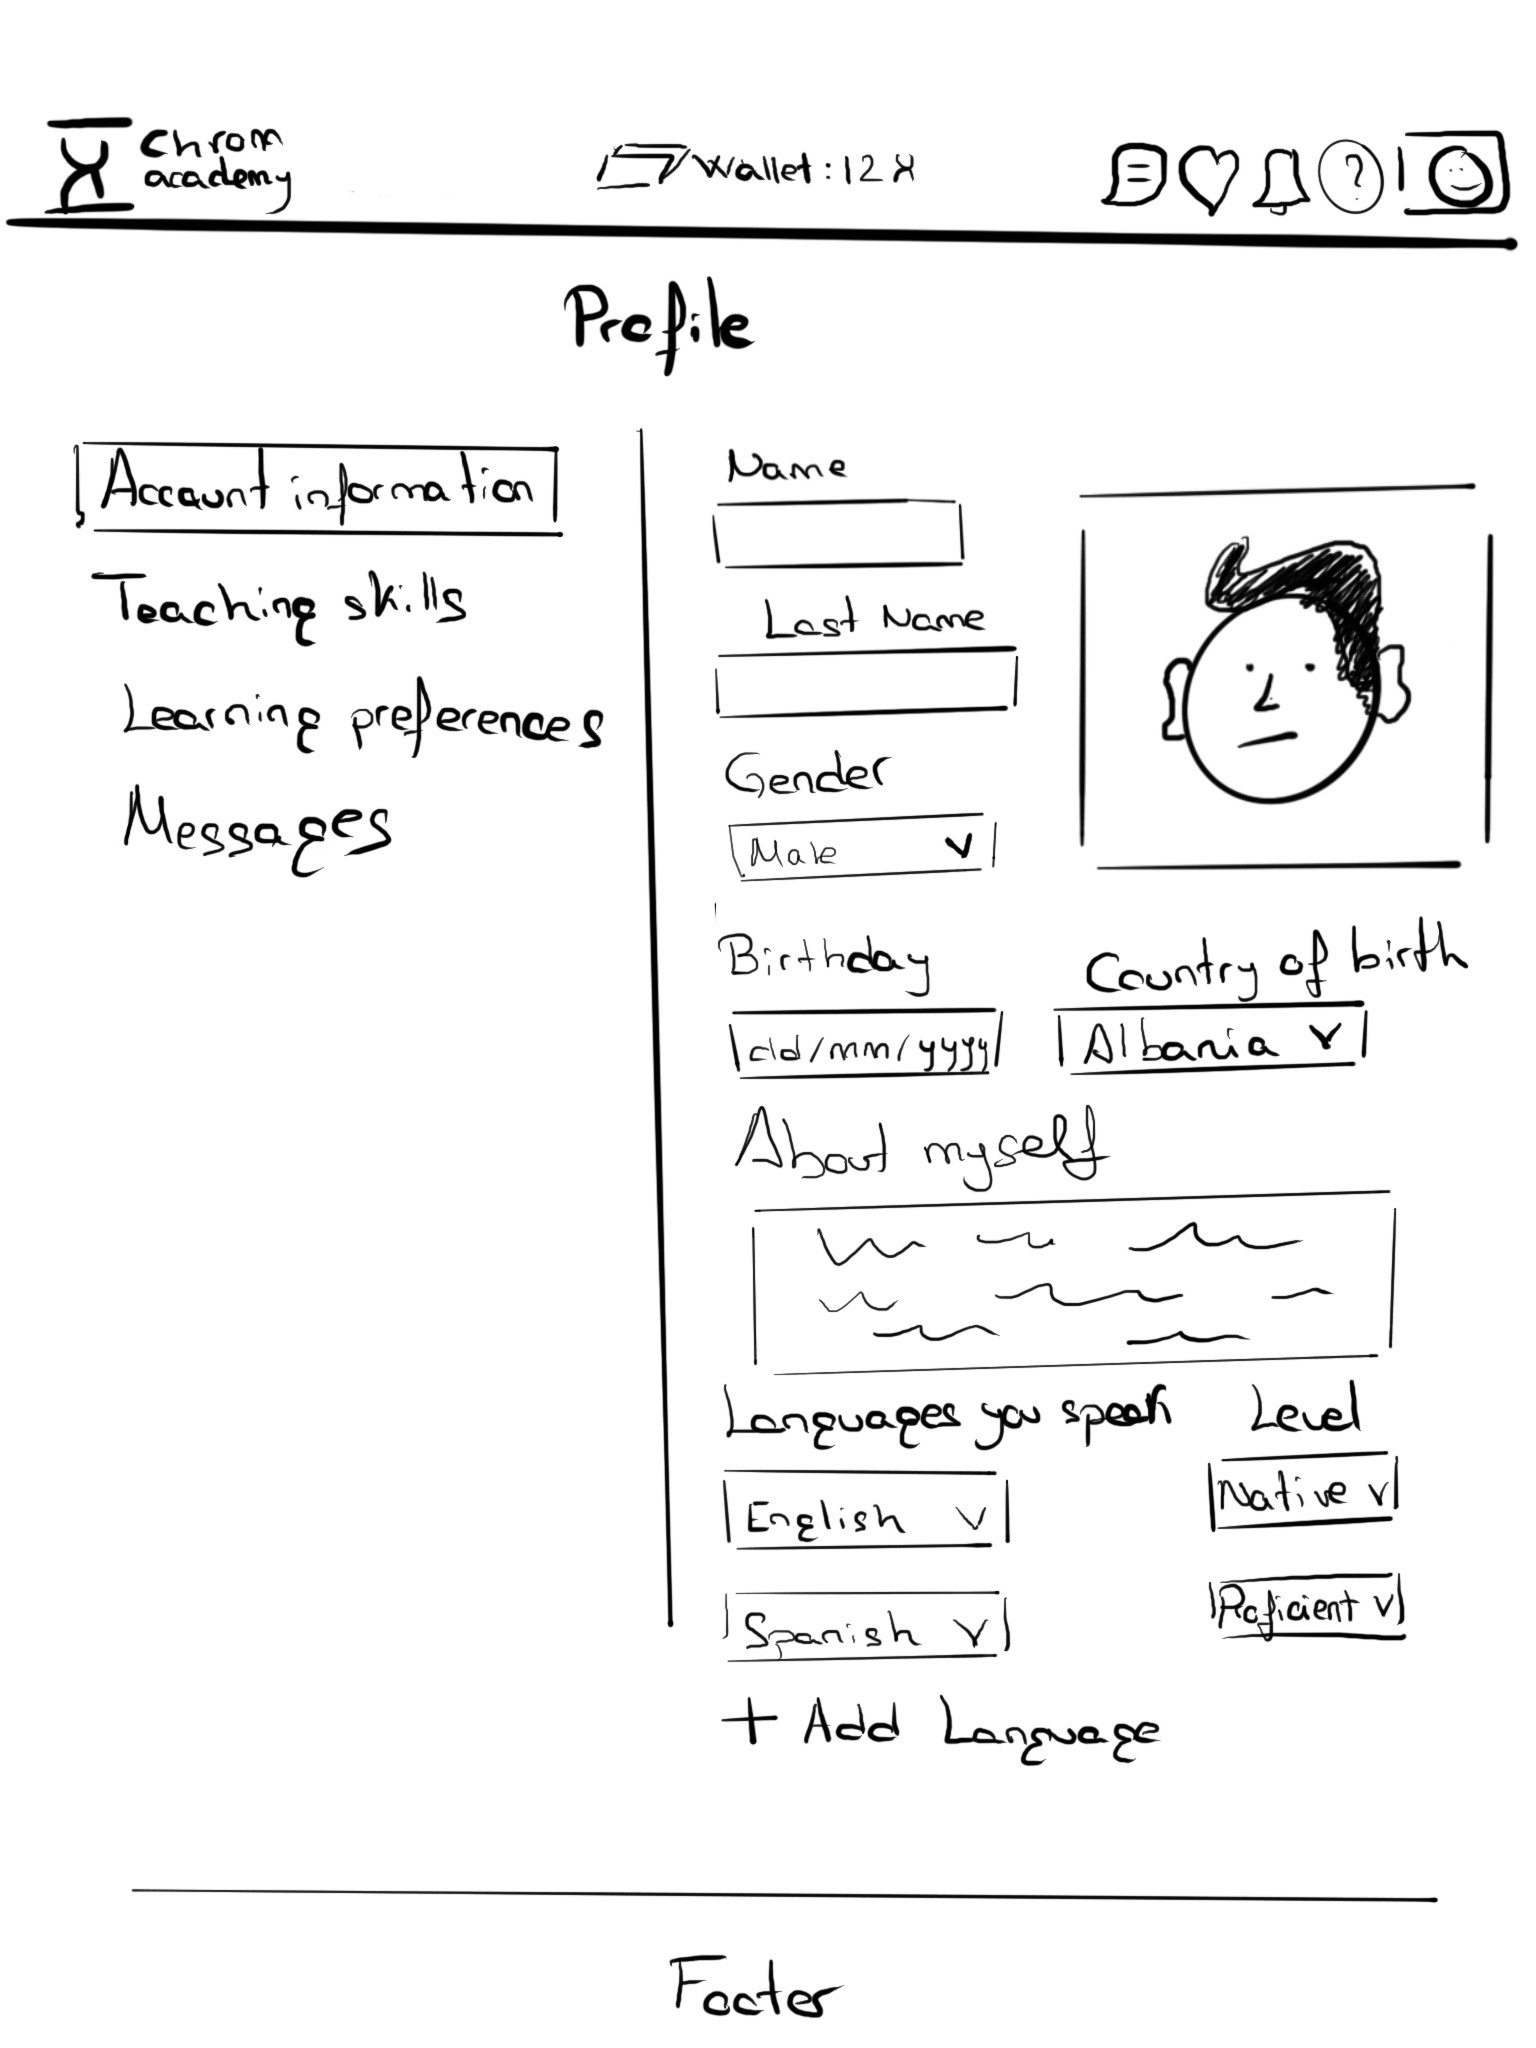 Chrom
academy
Wallet: 12 X
?
Profile
Account information
Teaching skills
Learning preferences
Messages
Name
Last Name
Gender
Male
Birthday
Country of birth
dd/mm/yyyy
Albania
About myself
Languages you speak
Level
English
Native
Spanish
Proficient
+ Add Language
Footer